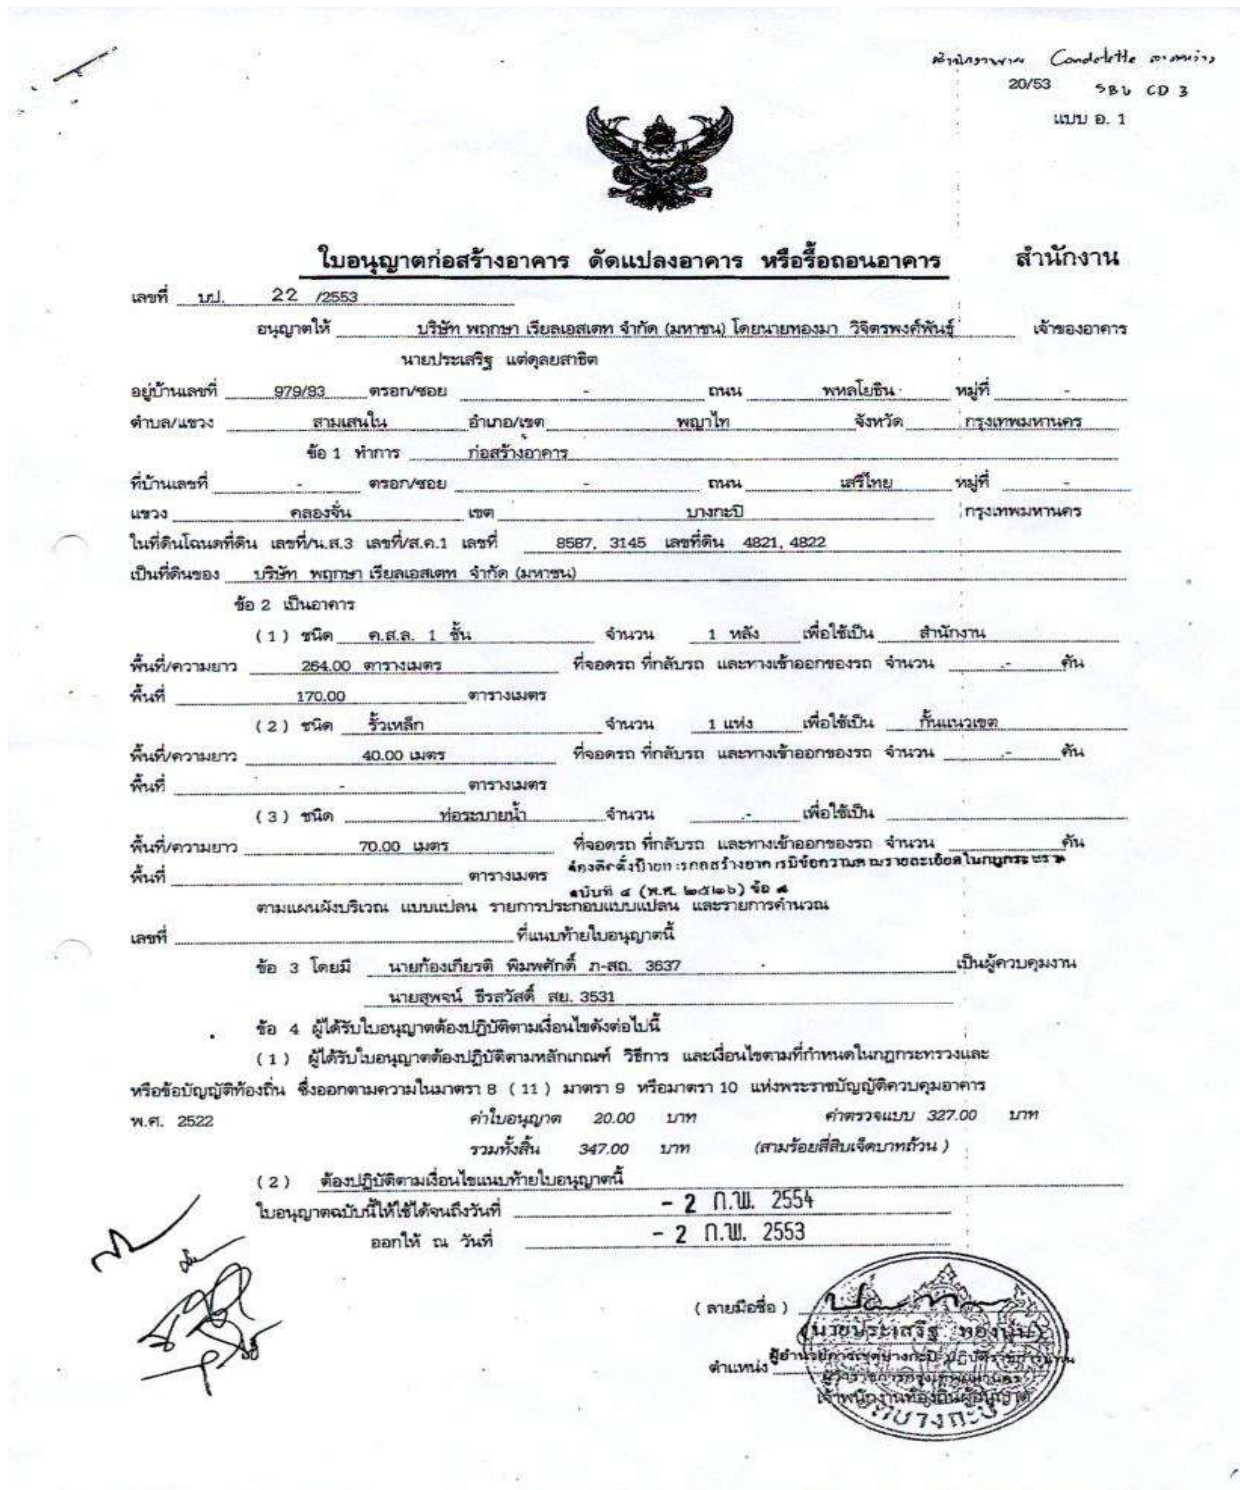 Condolette
20/53 SBU CD 3
แบบ อ. 1
ใบอนุญาตก่อสร้างอาคาร ดัดแปลงอาคาร หรือรื้อถอนอาคาร สำนักงาน
เลขที่ บป. 22 /2553
อนุญาตให้ บริษัท พฤกษา เรียลเอสเตท จำกัด (มหาชน) โดยนายทองมา วิจิตรพงศ์พันธุ์ เจ้าของอาคาร
นายประเสริฐ แต่ดุลยสาธิต
อยู่บ้านเลขที่ 979/83 ตรอก/ซอย - ถนน พหลโยธิน หมู่ที่ -
ตำบล/แขวง สามเสนใน อำเภอ/เขต พญาไท จังหวัด กรุงเทพมหานคร
ข้อ 1 ทำการ ก่อสร้างอาคาร
ที่บ้านเลขที่ - ตรอก/ซอย - ถนน เสรีไทย หมู่ที่ -
แขวง คลองจั่น เขต บางกะปิ กรุงเทพมหานคร
ในที่ดินโฉนดที่ดิน เลขที่/น.ส.3 เลขที่/ส.ค.1 เลขที่ 8587, 3145 เลขที่ดิน 4821, 4822
เป็นที่ดินของ บริษัท พฤกษา เรียลเอสเตท จำกัด (มหาชน)
ข้อ 2 เป็นอาคาร
(1) ชนิด ค.ส.ล. 1 ชั้น จำนวน 1 หลัง เพื่อใช้เป็น สำนักงาน
พื้นที่/ความยาว 264.00 ตารางเมตร ที่จอดรถ ที่กลับรถ และทางเข้าออกของรถ จำนวน .- คัน
พื้นที่ 170.00 ตารางเมตร
(2) ชนิด รั้วเหล็ก จำนวน 1 แห่ง เพื่อใช้เป็น กั้นแนวเขต
พื้นที่/ความยาว 40.00 เมตร ที่จอดรถ ที่กลับรถ และทางเข้าออกของรถ จำนวน .- คัน
พื้นที่ - ตารางเมตร
(3) ชนิด ท่อระบายน้ำ จำนวน .- เพื่อใช้เป็น
พื้นที่/ความยาว 70.00 เมตร ที่จอดรถ ที่กลับรถ และทางเข้าออกของรถ จำนวน คัน
พื้นที่ ตารางเมตร
ฉบับที่ ๔ (พ.ศ. ๒๕๒๖) ข้อ
ตามแผนผังบริเวณ แบบแปลน รายการประกอบแบบแปลน และรายการคำนวณ
เลขที่ ที่แนบท้ายใบอนุญาตนี้
ข้อ 3 โดยมี นายก้องเกียรติ พิมพศักดิ์ ภ-สถ. 3637 เป็นผู้ควบคุมงาน
นายสุพจน์ ธีรสวัสดิ์ สย. 3531
ข้อ 4 ผู้ได้รับใบอนุญาตต้องปฏิบัติตามเงื่อนไขดังต่อไปนี้
(1) ผู้ได้รับใบอนุญาตต้องปฏิบัติตามหลักเกณฑ์ วิธีการ และเงื่อนไขตามที่กำหนดในกฎกระทรวงและ
หรือข้อบัญญัติท้องถิ่น ซึ่งออกตามความในมาตรา 8 (11) มาตรา 9 หรือมาตรา 10 แห่งพระราชบัญญัติควบคุมอาคาร
พ.ศ. 2522 ค่าใบอนุญาต 20.00 บาท ค่าตรวจแบบ 327.00 บาท
รวมทั้งสิ้น 347.00 บาท (สามร้อยสี่สิบเจ็ดบาทถ้วน)
(2) ต้องปฏิบัติตามเงื่อนไขแนบท้ายใบอนุญาตนี้
ใบอนุญาตฉบับนี้ให้ใช้ได้จนถึงวันที่ - 2 ก.พ. 2554
ออกให้ ณ วันที่ - 2 ก.พ. 2553
(ลายมือชื่อ)
ตำแหน่ง
เจ้าพนักงานท้องถิ่นผู้อนุญาต